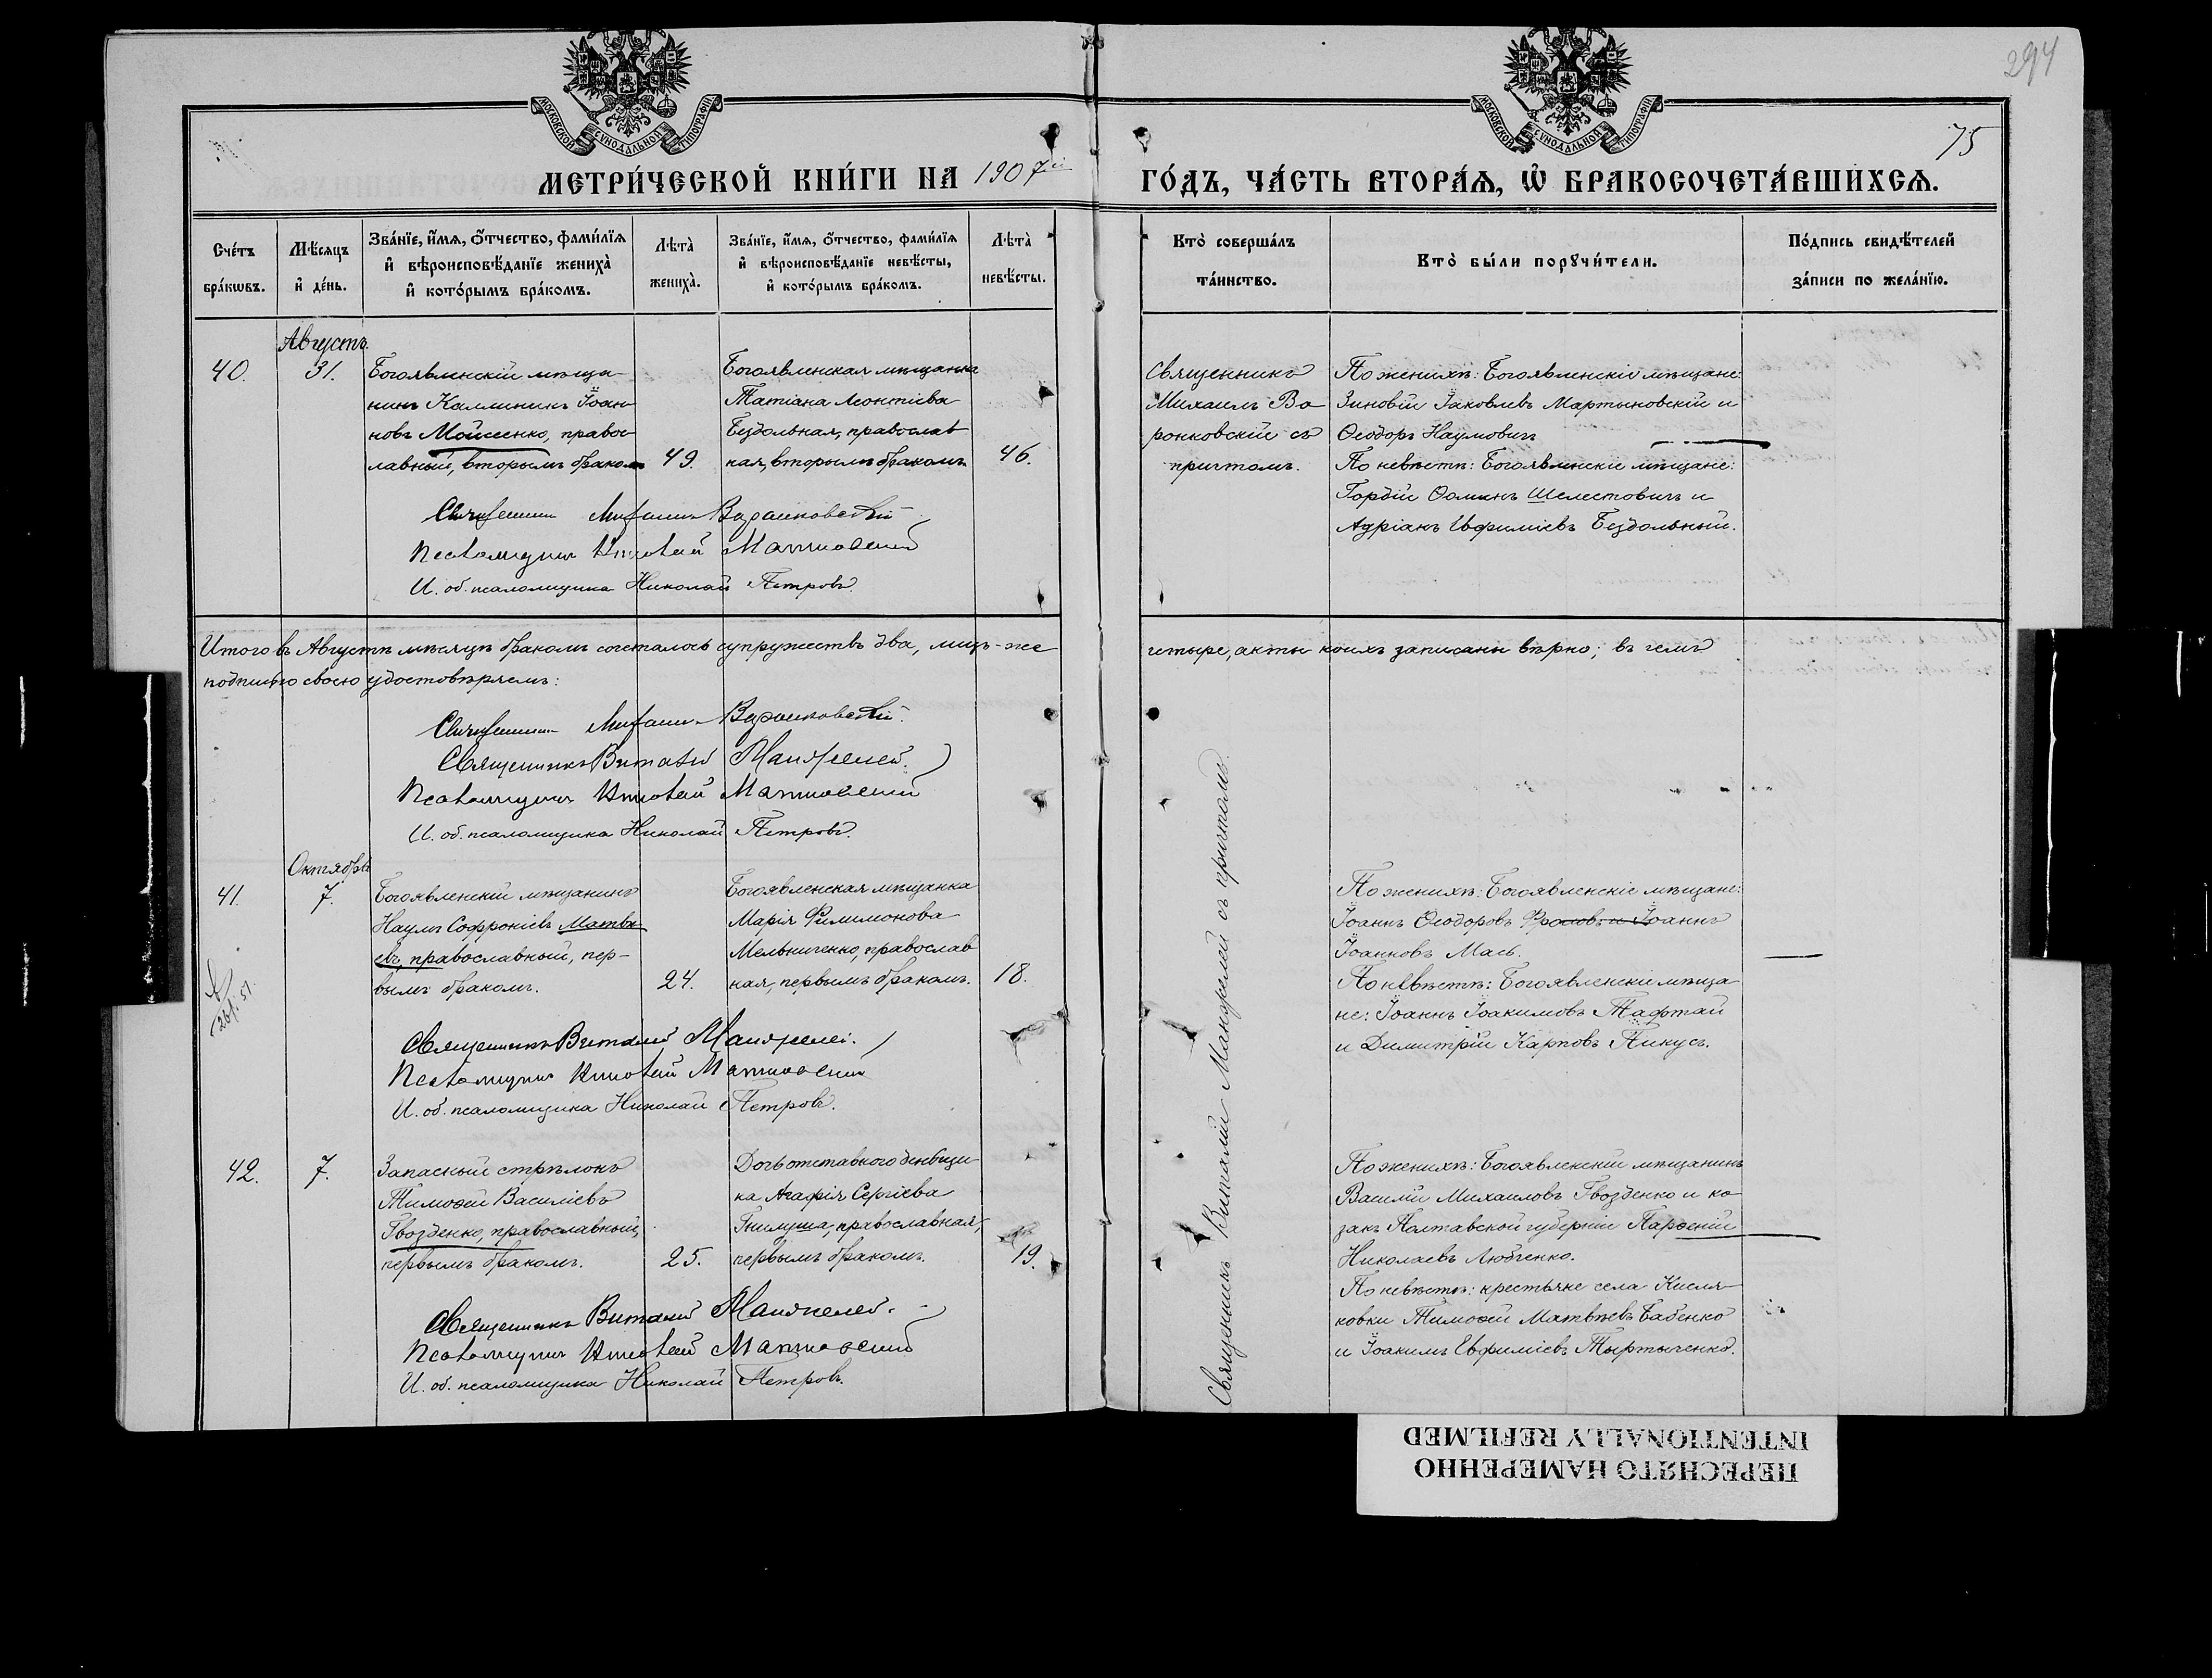 294
75
МОСКОВСКОЙ СѴНОДАЛЬНОЙ ТИПОГРАФІИ
МОСКОВСКОЙ СѴНОДАЛЬНОЙ ТИПОГРАФІИ
МЕТРИ́ЧЕСКОЙ КНИ́ГИ НА 1907й
ГО́ДЪ, ЧА́СТЬ ВТОРА́Я, Ѽ БРАКОСОЧЕТА́ВШИХСЯ.
Сче́тъ бра́кѡвъ.
Мѣ́сяцъ и҆ де́нь.
Зва́нїе, и҆́мя, ѻ҆́тчество, фами́лїя
и҆ вѣроисповѣ́данїе жениха̀
и҆ кото́рымъ бра́комъ.
Лѣта̀ жениха̀.
Зва́нїе, и҆́мя, ѻ҆́тчество, фами́лїя
и҆ вѣроисповѣ́данїе невѣ́сты,
и҆ кото́рымъ бра́комъ.
Лѣта̀ невѣ́сты.
Кто̀ соверша́лъ та́инство.
Кто̀ бы́ли порꙋчи́тели.
По́дпись свидѣ́телей за́писи по жела́нїю.
Августъ.
40.
31.
Богоявленскій мѣща-
нинъ Каллиникъ Іоан-
новъ Мойсеенко, правос-
лавный, вторымъ бракомъ
49.
Богоявленская мѣщанка
Татіана Леонтіева
Бездольная, православ
ная, вторымъ бракомъ.
46.
Священникъ
Михаилъ Во-
ронковскій съ
причтомъ.
По женихѣ: Богоявленскіе мѣщане:
Зиновій Іаковлевъ Мартыновскій и
Ѳеодоръ Наумовичъ
По невѣстѣ: Богоявленскіе мѣщане:
Гордій Ѳоминъ Шелестовичъ и
Адріанъ Евфиміевъ Бездольный.
Священникъ Михаилъ Воронковскій
Псаломщикъ
И. об. псаломщика Николай Петровъ.
Итого въ Августѣ мѣсяцѣ бракомъ сочеталось супружествъ два, лицъ-же
четыре, акты коихъ записаны вѣрно; въ чемъ
подписью своею удостовѣряемъ:
Священникъ Михаилъ Воронковскій.
Священникъ Виталій Манжелей.
Псаломщикъ
И. об. псаломщика Николай Петровъ.
Октябрь
41.
7.
Богоявленскій мѣщанинъ
Наумъ Софроніевъ Матвѣ-
евъ, православный, пер-
вымъ бракомъ.
24.
Богоявленская мѣщанка
Марія Филимонова
Мельниченко, православ
ная, первымъ бракомъ.
18.
Священникъ Виталій Манжелей съ причтомъ.
По женихѣ: Богоявленскіе мѣщане:
Іоаннъ Ѳеодоровъ Фроловъ и Іоаннъ
Іоанновъ Мась.
По невѣстѣ: Богоявленскіе мѣща-
не: Іоаннъ Іоакимовъ Тафтай
и Димитрій Карповъ Пикусъ.
Священникъ Виталій Манжелей.
Псаломщикъ
И. об. псаломщика Николай Петровъ.
42.
7.
Запасный стрѣлокъ
Тимоѳей Василіевъ
Гвозденко, православный,
первымъ бракомъ.
25.
Дочь отставного денщи-
ка Агафія Сергіева
Гнилуша, православная,
первымъ бракомъ.
19.
По женихѣ: Богоявленскій мѣщанинъ
Василій Михаиловъ Гвозденко и ка-
закъ Полтавской губерніи Парѳеній
Николаевъ Любченко.
По невѣстѣ: крестьяне села Кисля-
ковки Тимоѳей Матвѣевъ Бабенко
и Іоакимъ Евфиміевъ Тыртыченко.
Священникъ Виталій Манжелей.
Псаломщикъ
И. об. псаломщика Николай Петровъ.
ПЕРЕСНЯТО НАМЕРЕННО
INTENTIONALLY REFILMED